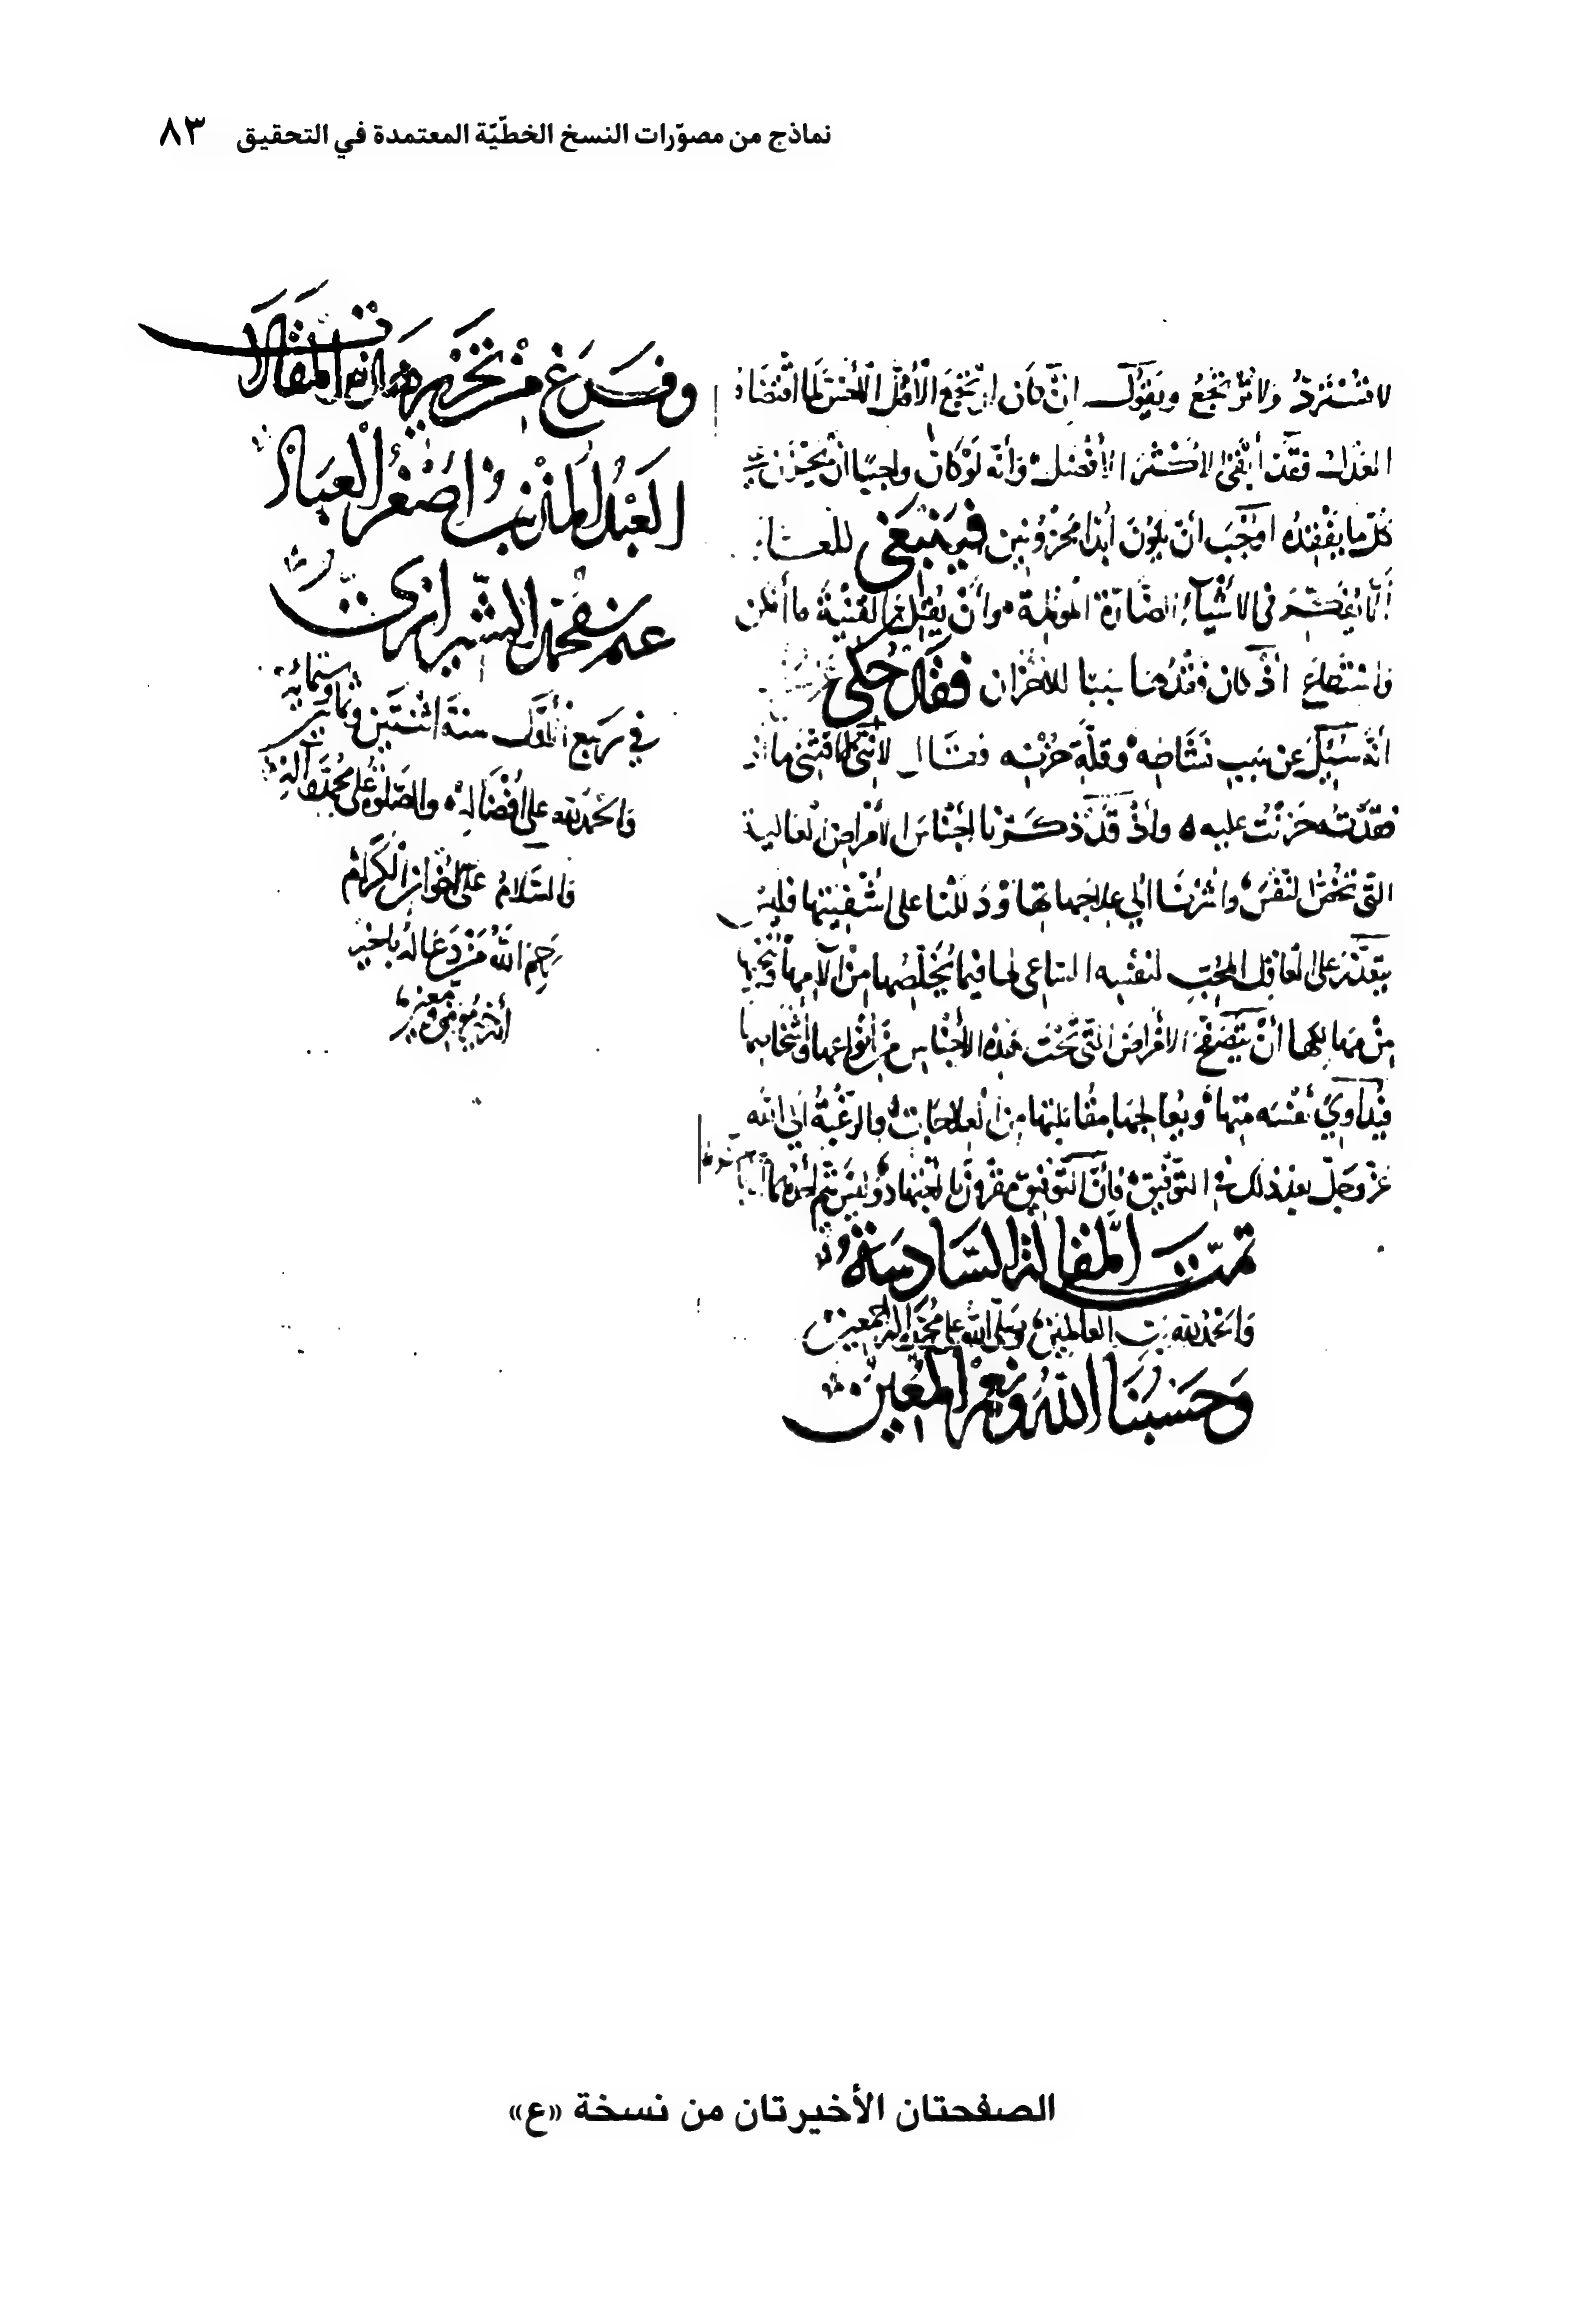 نماذج من مصوّرات النسخ الخطّيّة المعتمدة في التحقيق ٨٣
لا تسترد ولا ترتجع ويقول ان كان ارتجع الأقل الأخس لما اقتضاه
العدل فقد أبقى الأكثر الأفضل وانه لو كان واجبا ان نحزن
كل ما نفقده لوجب أن نكون أبدا محزونين فينبغي للعاقل
ألا يفكر في الأشياء الضارة المؤلمة وأن يقلل من القنية ما أمكن
واستطاع اذ كان فقدها سببا للاحزان فقد حكي
أنه سئل عن سبب نشاطه وقلة حزنه فقال لأنني لا اقتني ما اذا
فقدته حزنت عليه واذ قد ذكرنا أجناس الأمراض الغالبة
التي تخص النفس وأشرنا إلى علاجاتها ودللنا على أشفيتها فليس
يتعذر على العاقل المحب لنفسه الساعي لها فيما يخلصها من آلامها وينجيها
من مهالكها أن يتصفح الأمراض التي تحت هذه الأجناس من أنواعها وأشخاصها
فيداوي نفسه منها ويعالجها بمقابلتها من العلاجات والرغبة إلى الله
عز وجل بعد ذلك في التوفيق فإن التوفيق مقرون بالاجتهاد وليس يتم أحدهما
تمت المقالة السادسة
والحمد لله رب العالمين وصلى الله على محمد وآله أجمعين
وحسبنا الله ونعم المعين
وفرغ من تحريره هذه المقالات
العبد المذنب أصغر العباد
عمر الشيرازي
في ربيع الأول سنة اثنتين وثمانين وستمائة
والحمد لله على افضاله والصلوة على محمد وآله
والسلام على اخوانه الكرام
رحم الله من دعا له بالخير
الصفحتان الأخيرتان من نسخة «ع»